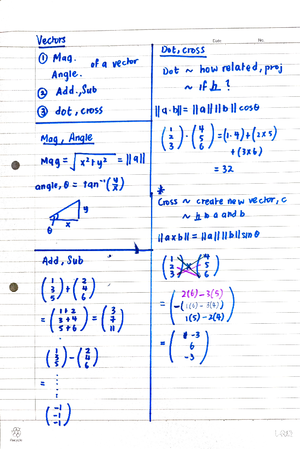 Vectors
① Mag. of a vector
Angle.
② Add., Sub
③ dot, cross
Mag, Angle
Mag = √(x² + y²) = ||a||
angle, θ = tan⁻¹(y/x)
y
θ x
Add, Sub
(1 3 5) + (2 4 6)
= (1+2 3+4 5+6) = (3 7 11)
(1 3 5) - (2 4 6)
=
(-1 -1 -1)
Date No.
Dot, cross
Dot ~ how related, proj
~ if ⊥ ?
||a·b|| = ||a|| ||b|| cosθ
(1 2 3) · (4 5 6) = (1·4) + (2×5)
+ (3×6)
= 32
Cross ~ create new vector, c
~ ⊥ a and b
||a×b|| = ||a|| ||b|| sinθ
(1 2 3) × (4 5 6)
= (2(6) - 3(5) -(1(6) - 3(4)) 1(5) - 2(4))
= (-3 6 -3)